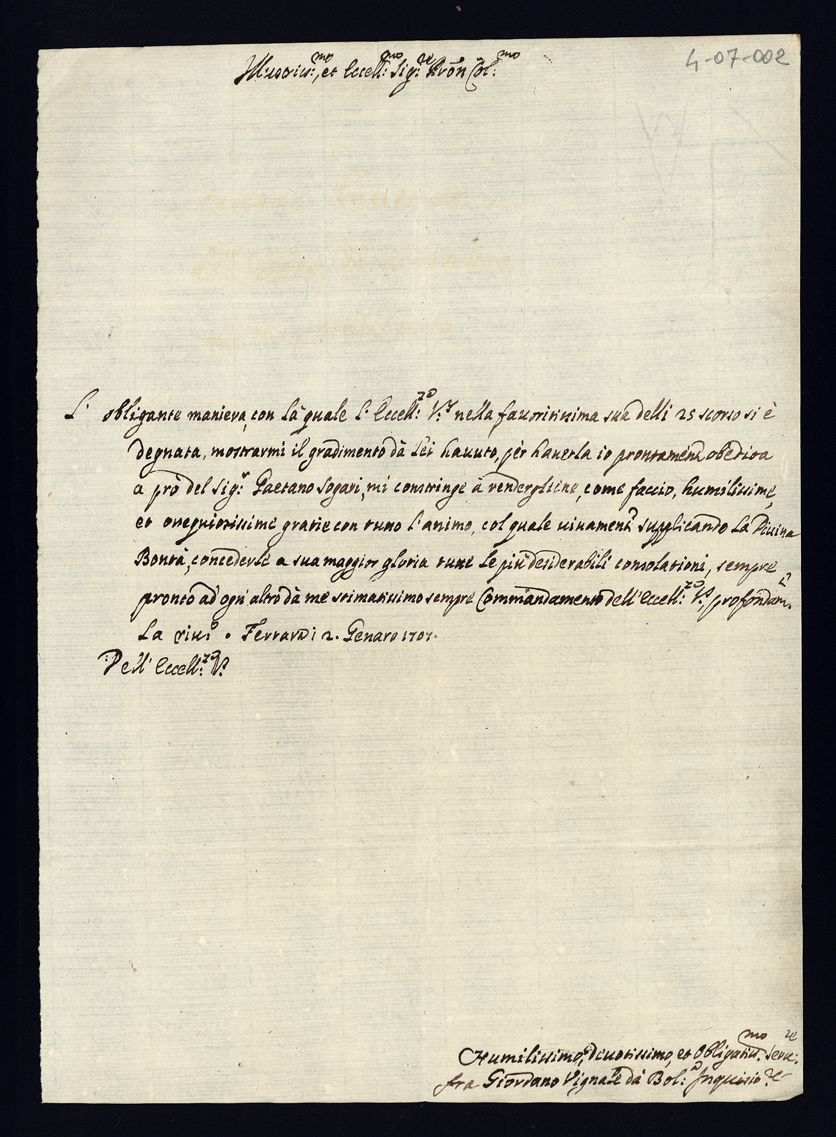 4-07-002
Illustriss:mo, et Eccell:mo Sig:re Pron Col:mo
L' obligante maniera, con la quale l' Eccell:za V.ra nella fauoritissima sua delli 25 scorso si è
degnata, mostrarmi il gradimento dà Lei hauuto, pèr hauerla io prontamente obedita
a prò del Sig:r Gaetano Sogari, mi constringe à rendergliene, come faccio, humilissime,
et ossequiosissime gratie con tutto l'animo, col quale uiuamente supplicando la Diuina
Bontà, concederle a sua maggior gloria tutte le più desiderabili consolationi, sempre
pronto ad ogni altro dà me stimatissimo sempre Commandamento dell'Eccell:za V.ra profondam.te
La riu.o . Ferrara di 2. Genaro 1707.
Dell' Eccell:za V.
Humilissimo, Diuotissimo, et Obligatiss.mo Seru:re
fra Giordano Vignale dà Bol:a Inquisio.re